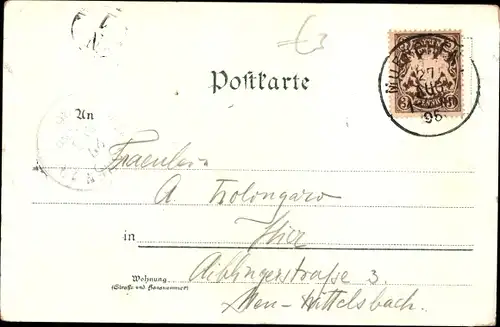 Postkarte
MUENCHEN
27
AUG
95
3
An
Fraeulein
A. Tolongaro
in Hier
Wohnung
(Straße und Hausnummer)
Aiblingerstraße 3.
Neu-Wittelsbach.